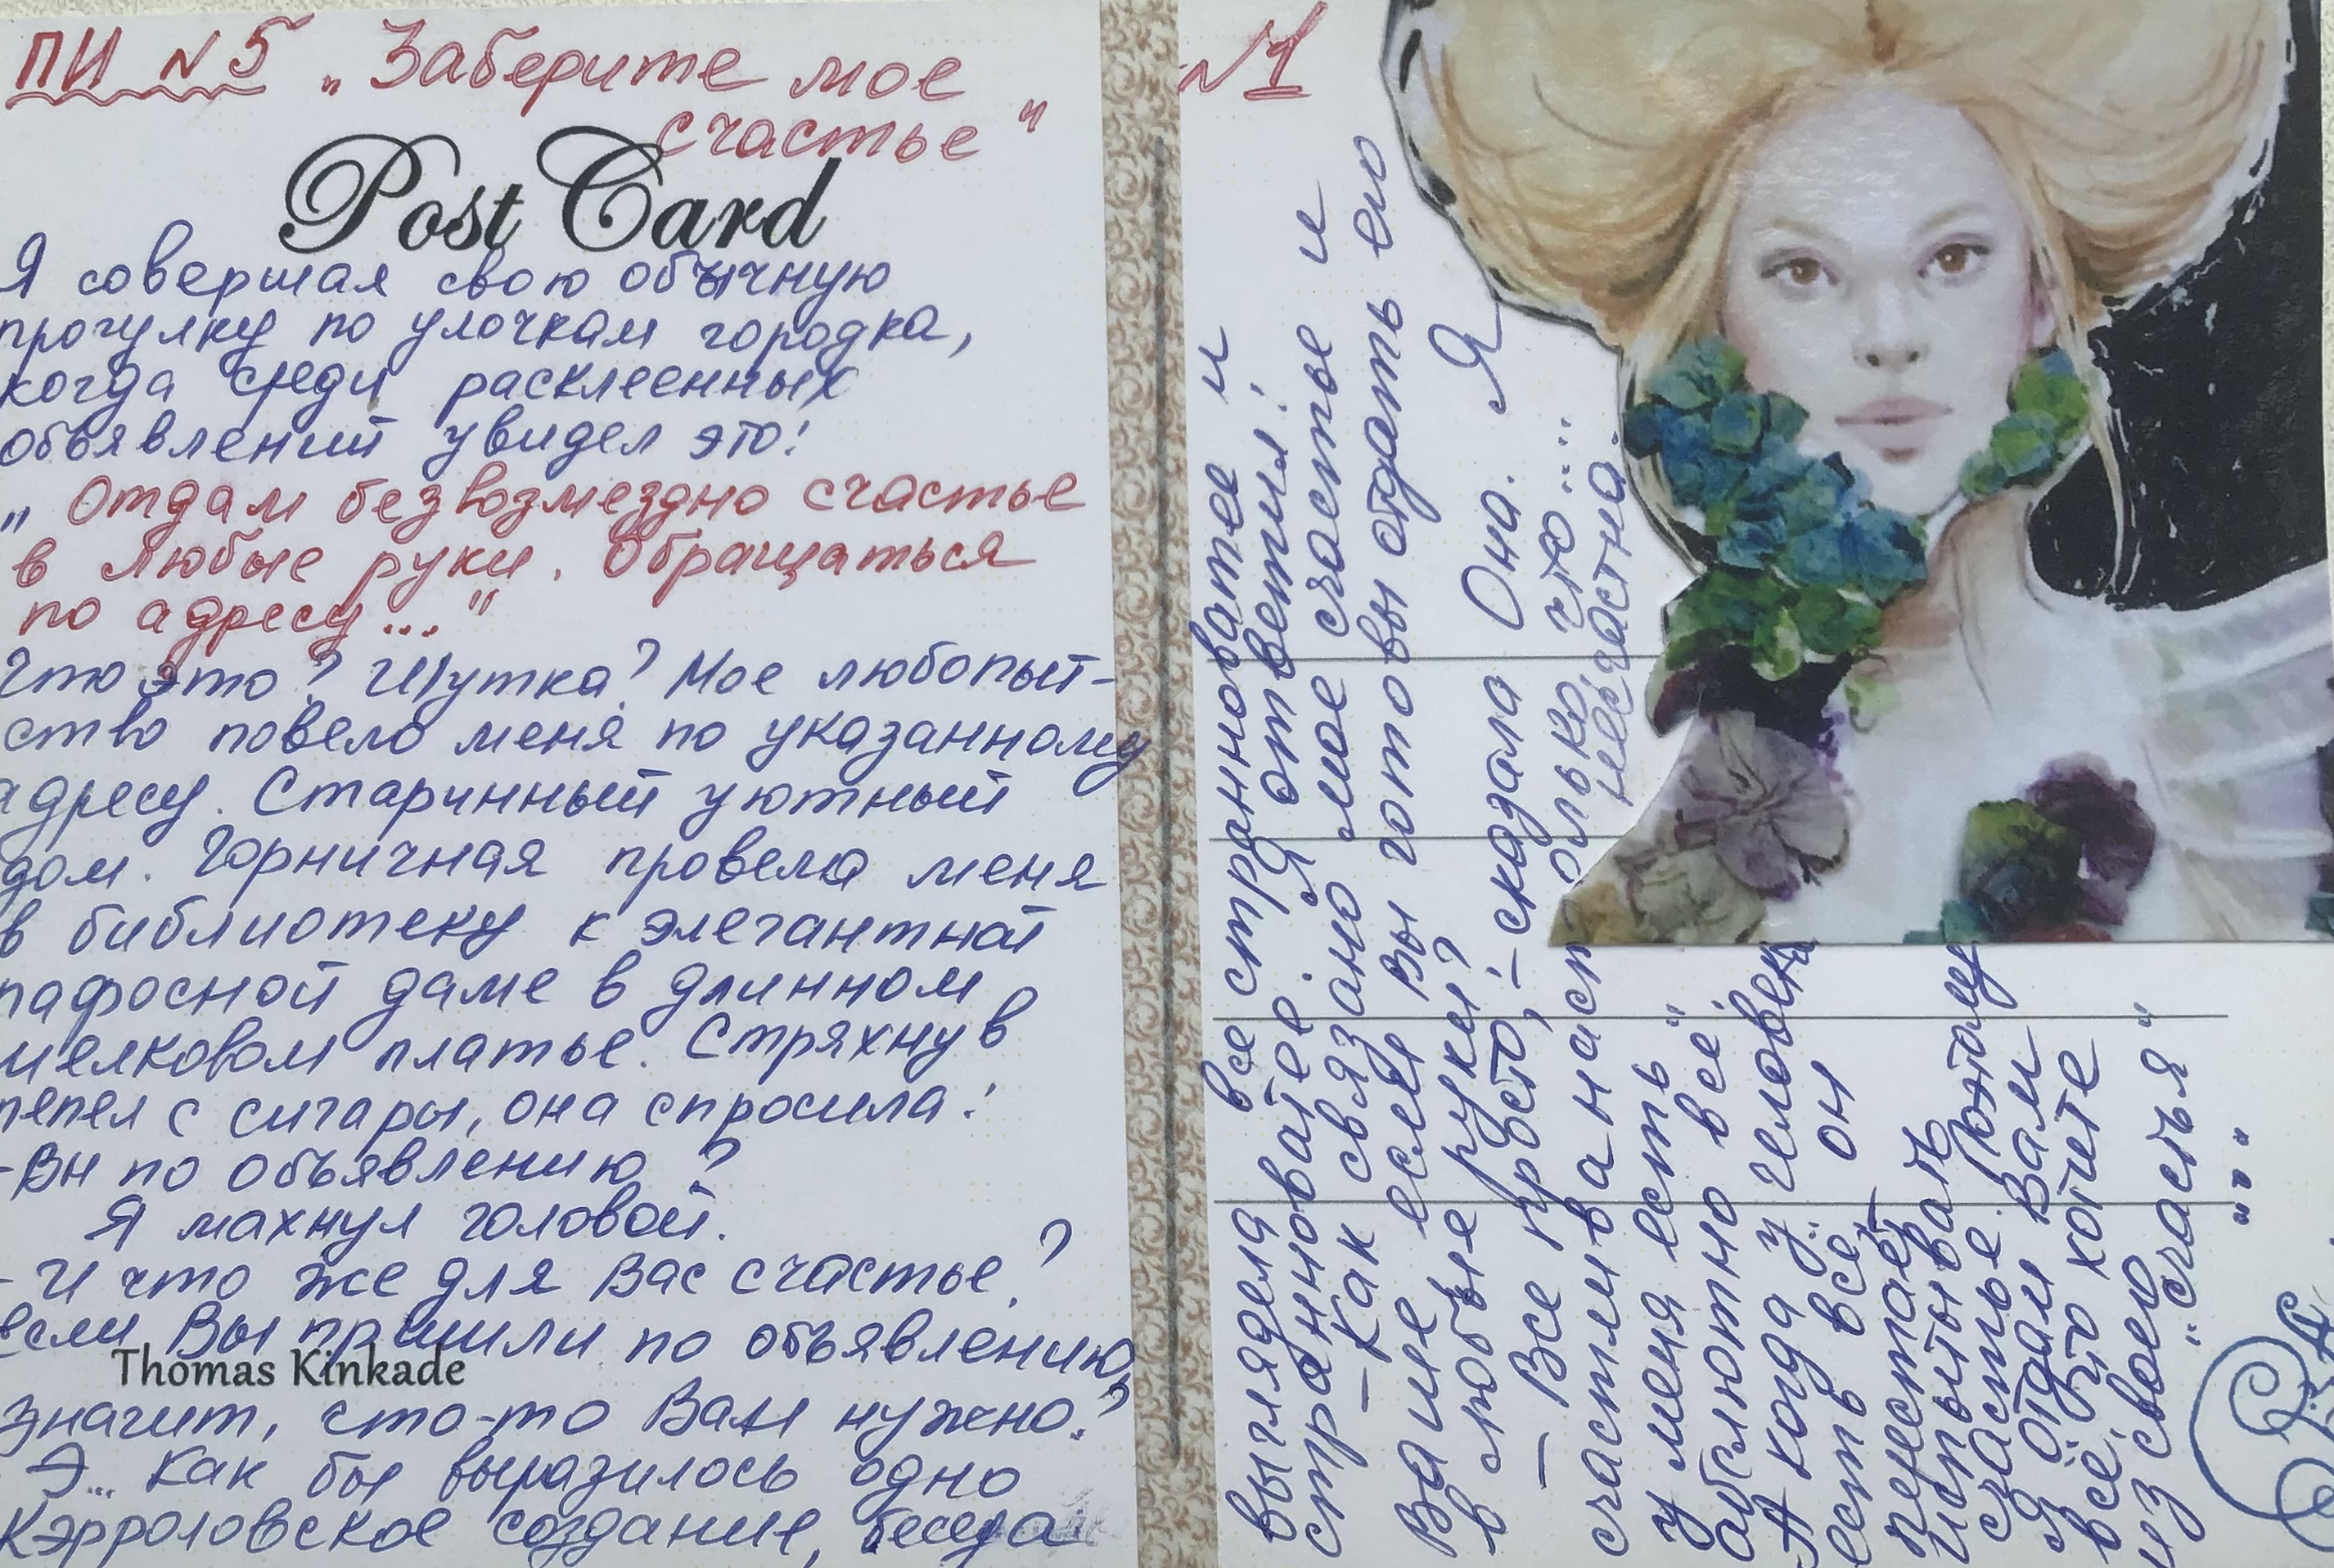 ПИ №5 „Заберите мое
счастье"
Post Card
Я совершая свою обычную
прогулку по улочкам городка,
когда среди расклеенных
объявлений увидел это!
„Отдам безвозмездно счастье
в любые руки. Обращаться
по адресу..."
Что это? Шутка? Мое любопыт-
ство повело меня по указанному
адресу. Старинный уютный
дом. Горничная провела меня
в библиотеку к элегантной
пафосной даме в длинном
шелковом платье. Стряхнув
пепел с сигары, она спросила:
-Вы по объявлению?
Я махнул головой.
- И что же для Вас счастье?
Если Вы пришли по объявлению,
Thomas Kinkade
значит, что-то Вам нужно?
Э... Как бы выразилось одно
Кэрроловское создание, беседа
№1
выглядела все странноватее и
странноватее. Я ответил:
– Как связано мое счастье и
Ваше если Вы готовы отдать его
в любые руки?
– Все просто, – сказала Она. Я
счастлива настолько, что...
несчастна.
У меня есть "
абсолютно всё.
А когда у человека
есть всё, он
перестаёт
испытывать
счастье. Поэтому
Я отдам Вам
всё, что хотите
из своего
„счастья"